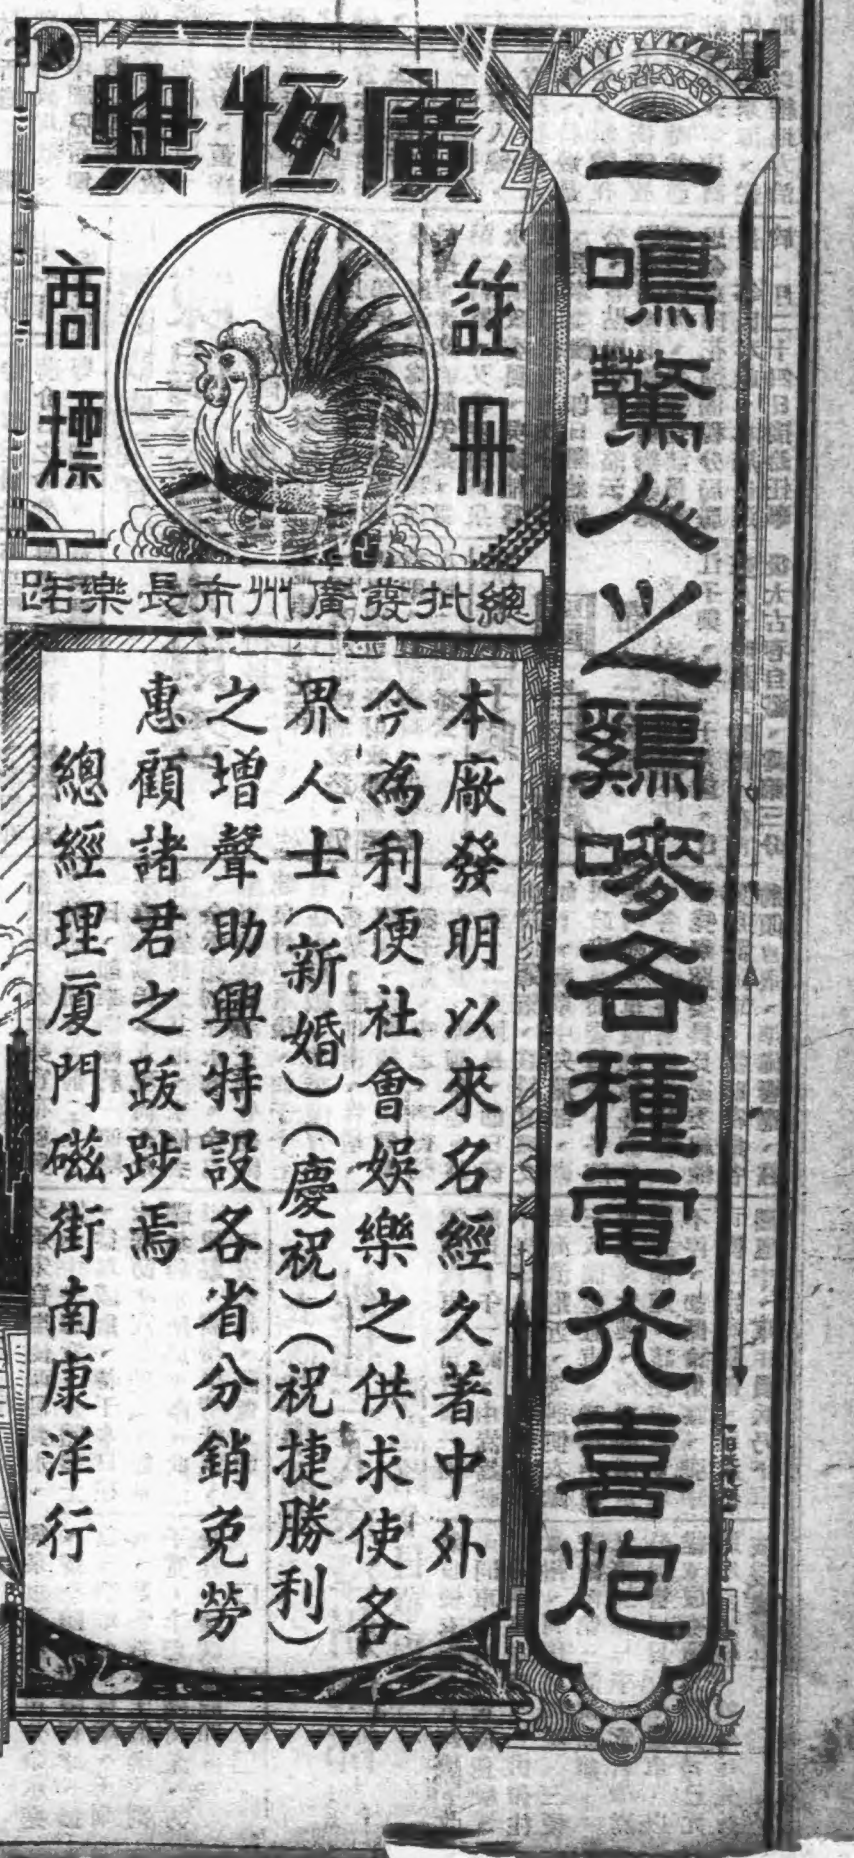 一鳴驚人之鷄嘜各種電光喜炮
廣恆興
註冊
商標
總批發廣州市長樂路
本廠發明以來名經久著中外
今為利便社會娛樂之供求使各
界人士(新婚)(慶祝)(祝捷勝利)
之增聲助興特設各省分銷免勞
惠顧諸君之跋涉焉
總經理厦門磁街南康洋行